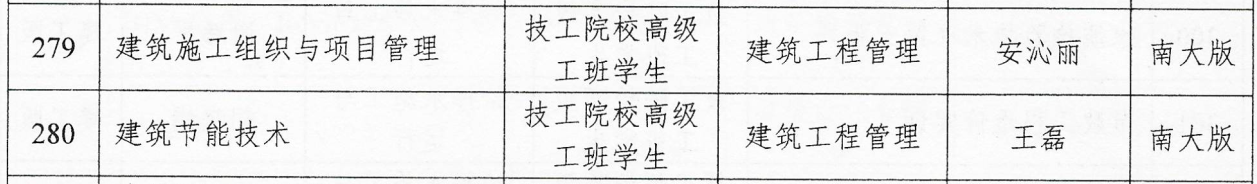 279 建筑施工组织与项目管理 技工院校高级工班学生 建筑工程管理 安沁丽 南大版
280 建筑节能技术 技工院校高级工班学生 建筑工程管理 王磊 南大版